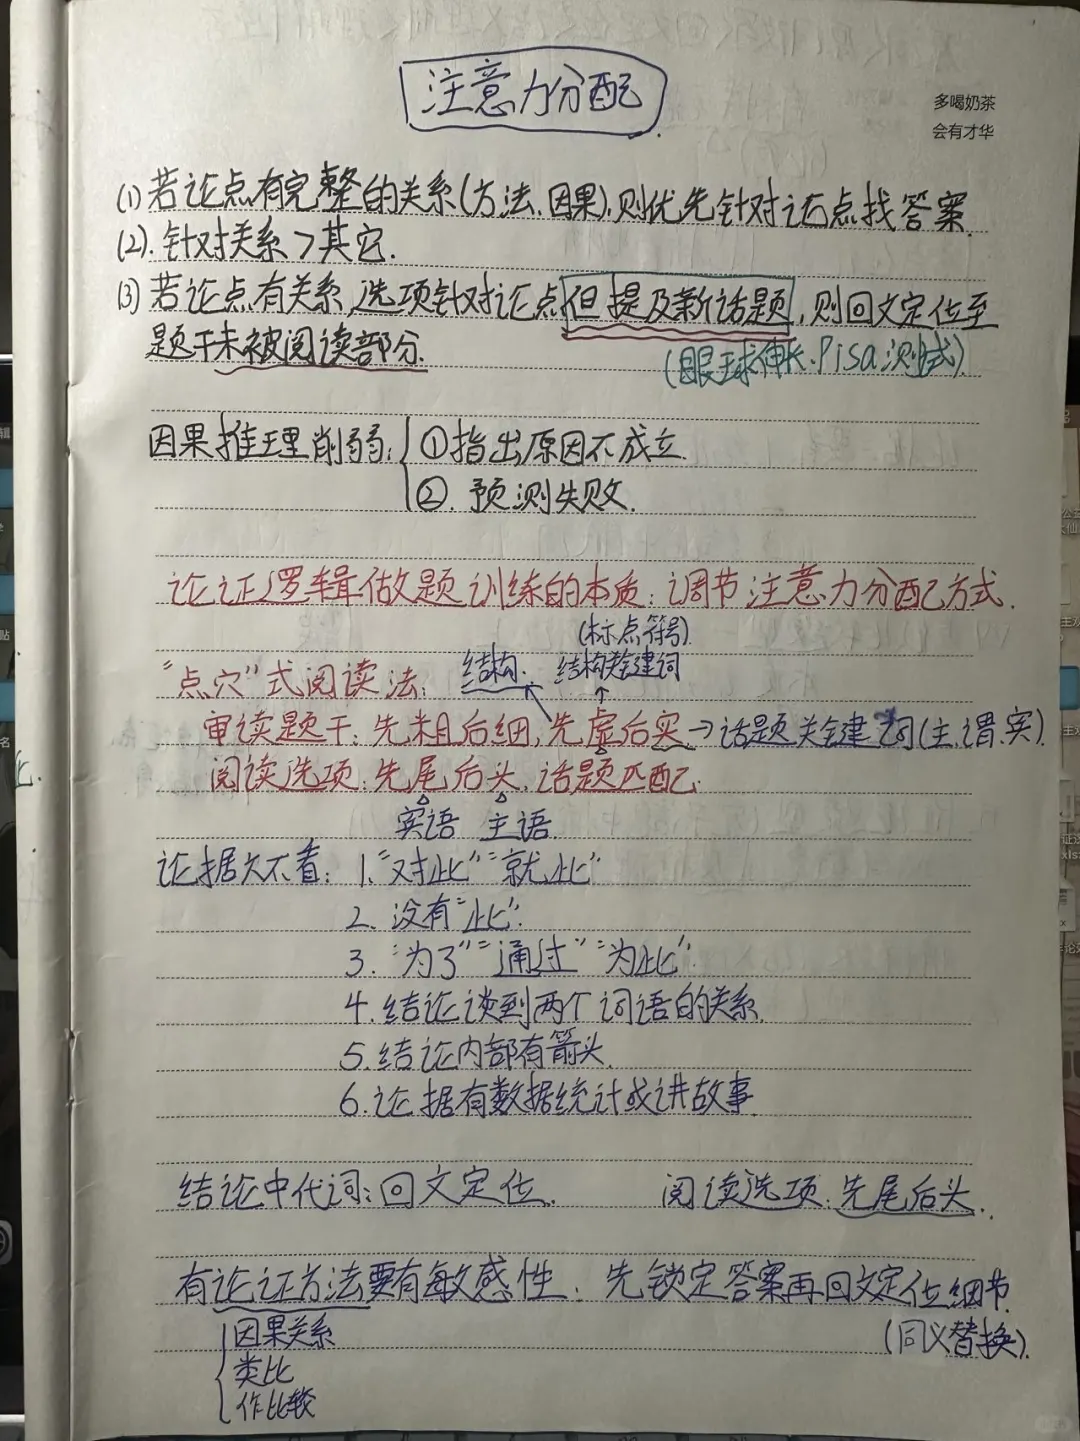 注意力分配
多喝奶茶
会有才华
(1)若论点有完整的关系(方法、因果),则优先针对论点找答案.
(2).针对关系>其它.
(3)若论点有关系,选项针对论点但提及新话题,则回文定位至
题干未被阅读部分.
(眼球伸长、Pisa测试).
因果推理削弱:
①指出原因不成立.
②.预测失败.
论证逻辑做题训练的本质:调节注意力分配方式.
(标点符号).
“点穴”式阅读法:结构. 结构关键词
审读题干:先粗后细,先虚后实→话题关键词(主、谓、宾).
阅读选项:先尾后头,话题匹配.
宾语 主语.
论据欠不看:1.“对此”“就此”
2.没有“此”.
3.“为了”“通过”“为此”.
4.结论谈到两个词语的关系.
5.结论内部有箭头.
6.论据有数据统计或讲故事
结论中代词:回文定位. 阅读选项:先尾后头.
有论证方法要有敏感性:先锁定答案再回文定位细节.
因果关系 (同义替换).
类比
作比较